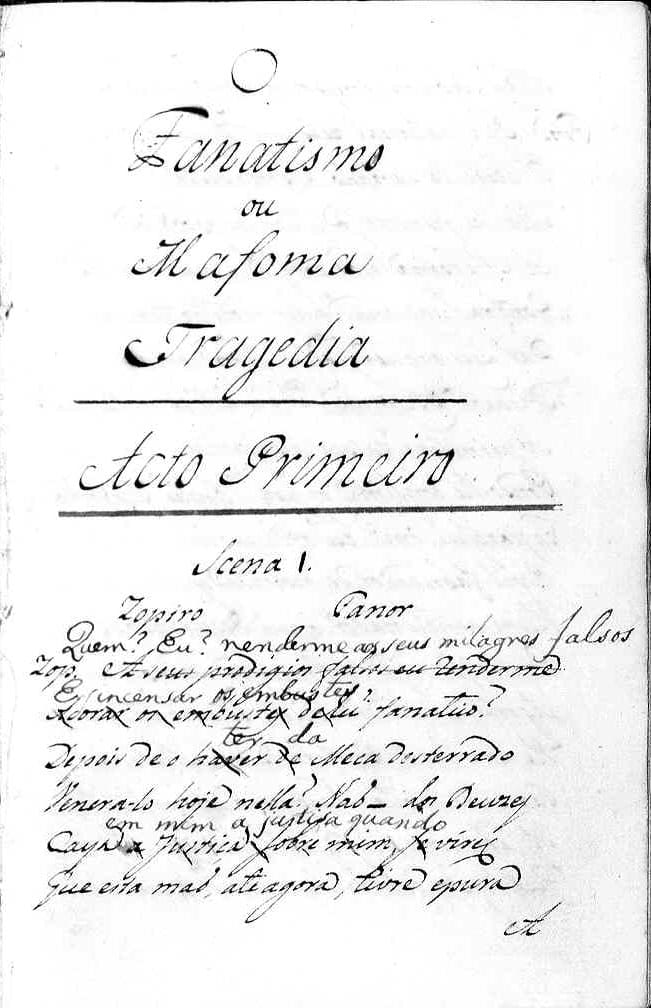 O
Fanatismo
ou
Mafoma
Tragedia
Acto Primeiro
Scena 1.
Zopiro Fanor
Quem? Eu? renderme aos seus milagres falsos
Zop. A seus prodigios falsos eu renderme
Eu incensar os embustes?
Adorar os embustes de hu fanatico?
ter da
Depois de o haver de Meca desterrado
Venera-lo hoje nella? Naõ _ dos Deuzes
em mim a justiça quando
Caya a Justiça sobre mim, se vires
Que esta maõ, ate agora, livre e pura
A